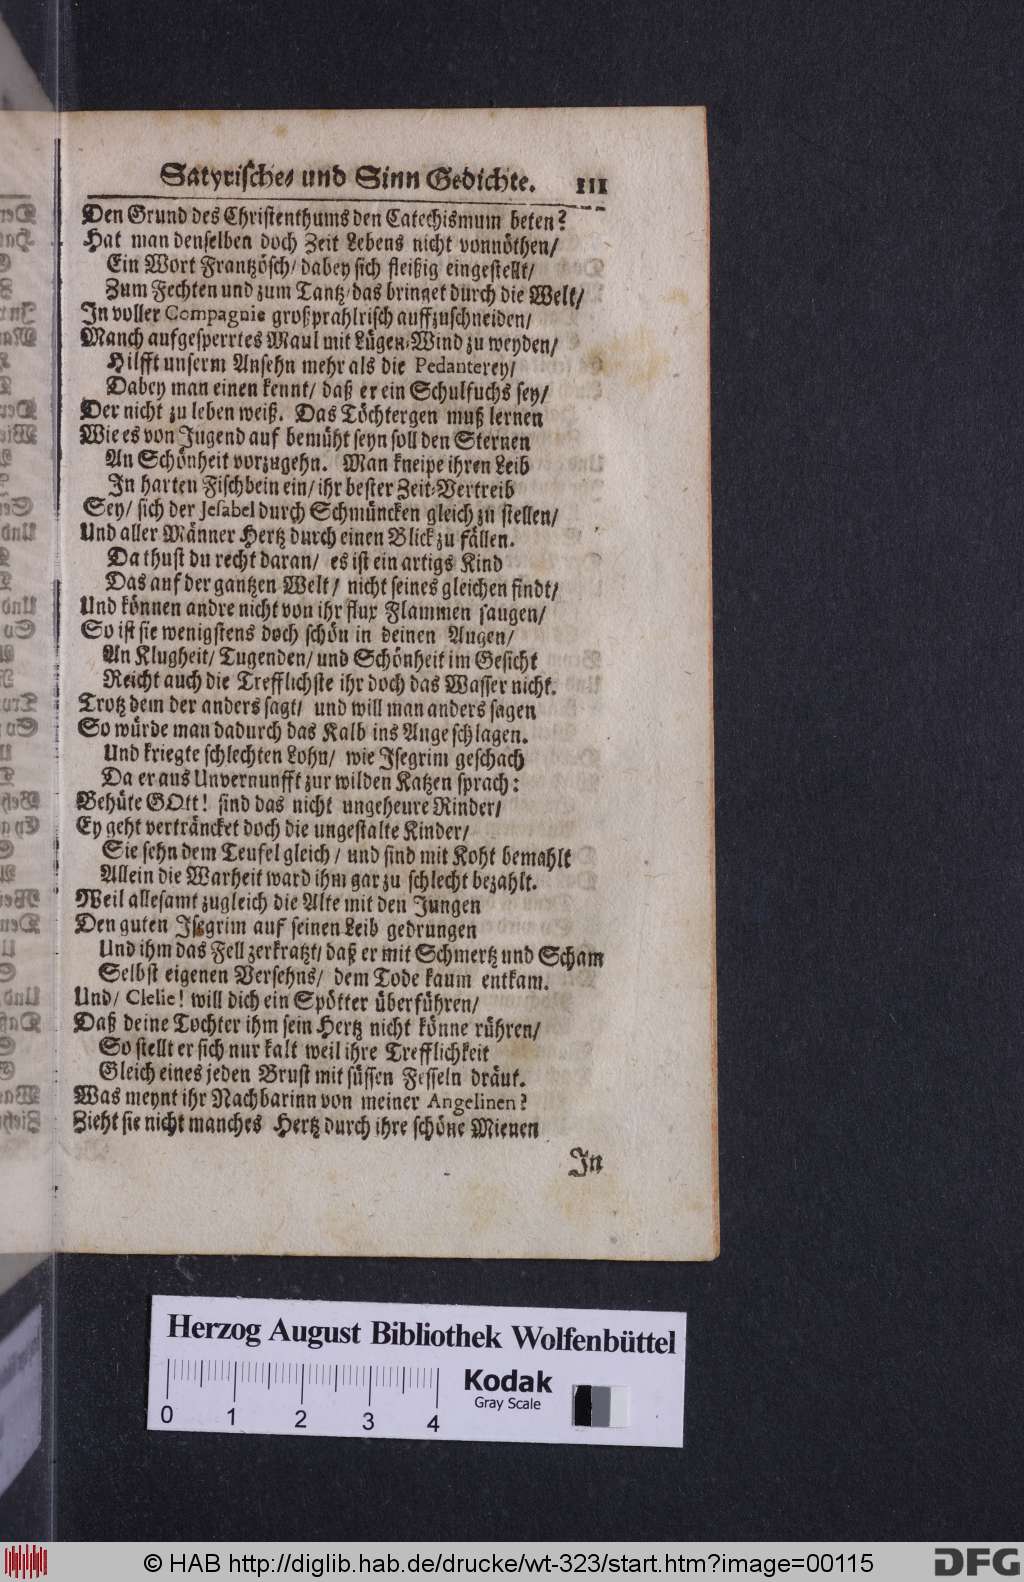 Satyrische/ und Sinn Gedichte. 111
Den Grund des Christenthums den Catechismum beten?
Hat man denselben doch Zeit Lebens nicht vonnöthen/
Ein Wort Frantzösch/ dabey sich fleißig eingestellt/
Zum Fechten und zum Tantz/ das bringet durch die Welt/
In voller Compagnie großprahlrisch auffzuschneiden/
Manch aufgesperrtes Maul mit Lügen-Wind zu weyden/
Hilfft unserm Ansehn mehr als die Pedanterey/
Dabey man einen kennt/ daß er ein Schulfuchs sey/
Der nicht zu leben weiß. Das Töchtergen muß lernen
Wie es von Jugend auf bemüht seyn soll den Sternen
An Schönheit vorzugehn. Man kneipe ihren Leib
In harten Fischbein ein/ ihr bester Zeit-Vertreib
Sey/ sich der Jesabel durch Schmüncken gleich zu stellen/
Und aller Männer Hertz durch einen Blick zu fällen.
Da thust du recht daran/ es ist ein artigs Kind
Das auf der gantzen Welt/ nicht seines gleichen findt/
Und können andre nicht von ihr flux Flammen saugen/
So ist sie wenigstens doch schön in deinen Augen/
An Klugheit/ Tugenden/ und Schönheit im Gesicht
Reicht auch die Trefflichste ihr doch das Wasser nicht.
Trotz dem der anders sagt/ und will man anders sagen
So würde man dadurch das Kalb ins Auge schlagen.
Und kriegte schlechten Lohn/ wie Isegrim geschach
Da er aus Unvernunfft zur wilden Katzen sprach:
Behüte GOtt! sind das nicht ungeheure Rinder/
Ey geht verträncket doch die ungestalte Kinder/
Sie sehn dem Teufel gleich/ und sind mit Koht bemahlt
Allein die Warheit ward ihm gar zu schlecht bezahlt.
Weil allesamt zugleich die Alte mit den Jungen
Den guten Isegrim auf seinen Leib gedrungen
Und ihm das Fell zerkratzt/ daß er mit Schmertz und Scham
Selbst eigenen Versehns/ dem Tode kaum entkam.
Und/ Clelie! will dich ein Spötter überführen/
Daß deine Tochter ihm sein Hertz nicht könne rühren/
So stellt er sich nur kalt weil ihre Trefflichkeit
Gleich eines jeden Brust mit süssen Fesseln dräut.
Was meynt ihr Nachbarinn von meiner Angelinen?
Zieht sie nicht manches Hertz durch ihre schöne Mienen
In
Herzog August Bibliothek Wolfenbüttel
Kodak
Gray Scale
0 1 2 3 4
© HAB http://diglib.hab.de/drucke/wt-323/start.htm?image=00115
DFG